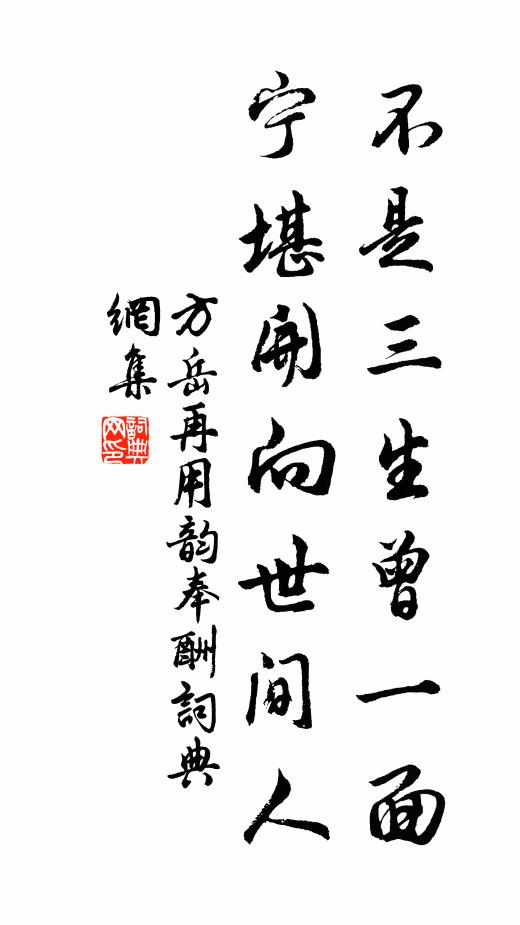 不是三生曾一面
宁堪開向世間人
方岳再用韵奉酬詞典
網集
詞典网印